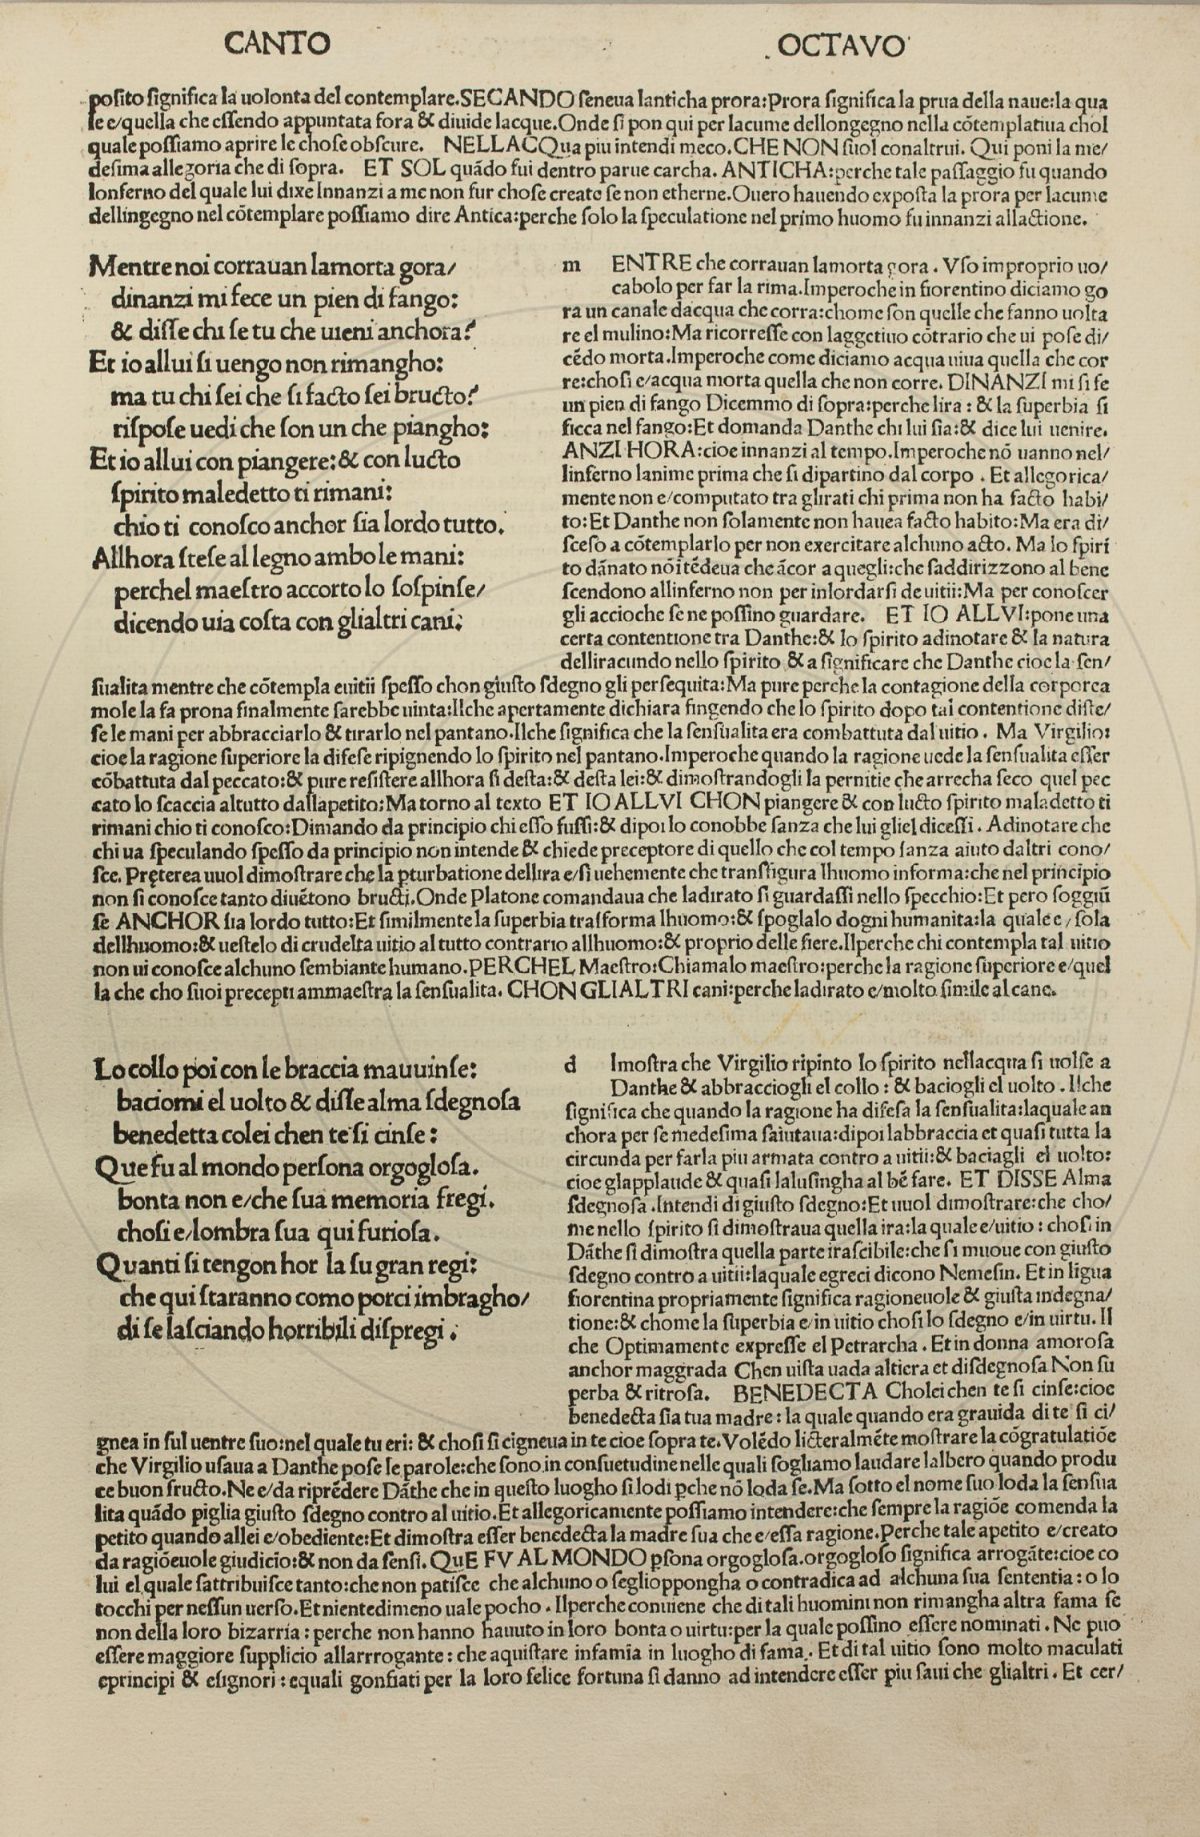 CANTO OCTAVO
posito significa la uolonta del contemplare.SECANDO seneua lanticha prora:Prora significa la prua della naue:la qua
le e/quella che essendo appuntata fora & diuide lacque.Onde si pon qui per lacume dellongegno nella cõtemplatiua chol
quale possiamo aprire le chose obscure. NELLACQua piu intendi meco.CHE NON suol conaltrui. Qui poni la me/
desima allegoria che di sopra. ET SOL quãdo fui dentro parue carcha. ANTICHA:perche tale passaggio fu quando
lonferno del quale lui dixe Innanzi a me non fur chose create se non etherne.Ouero hauendo exposta la prora per lacume
dellingegno nel cõtemplare possiamo dire Antica:perche solo la speculatione nel primo huomo fu innanzi allactione.
Mentre noi corrauan lamorta gora/
dinanzi mi fece un pien di fango:
& disse chi se tu che uieni anchora?
Et io allui si uengo non rimangho:
ma tu chi sei che si facto sei bructo?
rispose uedi che son un che piangho:
Et io allui con piangere:& con lucto
spirito maledetto ti rimani:
chio ti conosco anchor sia lordo tutto.
Allhora stese al legno ambo le mani:
perchel maestro accorto lo sospinse/
dicendo uia costa con glialtri cani:
m ENTRE che corrauan lamorta gora . Vso improprio uo/
cabolo per far la rima.Imperoche in fiorentino diciamo go
ra un canale dacqua che corra:chome son quelle che fanno uolta
re el mulino:Ma ricorresse con laggetiuo cõtrario che ui pose di/
cẽdo morta.Imperoche come diciamo acqua uiua quella che cor
re:chosi e/acqua morta quella che non corre. DINANZI mi si fe
un pien di fango Dicemmo di sopra:perche lira : & la superbia si
ficca nel fango:Et domanda Danthe chi lui sia:& dice lui uenire.
ANZI HORA:cioe innanzi al tempo.Imperoche nõ uanno nel/
linferno lanime prima che si dipartino dal corpo . Et allegorica/
mente non e/computato tra glirati chi prima non ha facto habi/
to:Et Danthe non solamente non hauea facto habito:Ma era di/
sceso a cõtemplarlo per non exercitare alchuno acto. Ma lo spiri
to dãnato nõ itẽdeua che ãcor a quegli:che saddirizzono al bene
scendono allinferno non per inlordarsi de uitii:Ma per conoscer
gli accioche se ne possino guardare. ET IO ALLVI:pone una
certa contentione tra Danthe:& lo spirito adinotare & la natura
delliracundo nello spirito & a significare che Danthe cioe la sen/
sualita mentre che cõtempla euitii spesso chon giusto sdegno gli persequita:Ma pure perche la contagione della corporea
mole la fa prona finalmente sarebbe uinta:Ilche apertamente dichiara fingendo che lo spirito dopo tal contentione diste/
se le mani per abbracciarlo & tirarlo nel pantano.Ilche significa che la sensualita era combattuta dal uitio . Ma Virgilio:
cioe la ragione superiore la difese ripignendo lo spirito nel pantano.Imperoche quando la ragione uede la sensualita esser
cõbattuta dal peccato:& pure resistere allhora si desta:& desta lei:& dimostrandogli la pernitie che arrecha seco quel pec
cato lo scaccia altutto dallapetito:Ma torno al texto ET IO ALLVI CHON piangere & con lucto spirito maladetto ti
rimani chio ti conosco:Dimando da principio chi esso fussi:& dipoi lo conobbe sanza che lui gliel dicessi . Adinotare che
chi ua speculando spesso da principio non intende & chiede preceptore di quello che col tempo sanza aiuto daltri cono/
sce. Pręterea uuol dimostrare che la pturbatione dellira e/si uehemente che transfigura lhuomo informa:che nel principio
non si conosce tanto diuẽtono bructi.Onde Platone comandaua che ladirato si guardassi nello specchio:Et pero soggiũ
se ANCHOR sia lordo tutto:Et similmente la superbia trasforma lhuomo:& spoglalo dogni humanita:la quale e/sola
dellhuomo:& uestelo di crudelta uitio al tutto contrario allhuomo:& proprio delle fiere.Ilperche chi contempla tal uitio
non ui conosce alchuno sembiante humano.PERCHEL Maestro:Chiamalo maestro:perche la ragione superiore e/quel
la che cho suoi precepti ammaestra la sensualita. CHON GLIALTRI cani:perche ladirato e/molto simile al cane.
Lo collo poi con le braccia mauuinse:
baciomi el uolto & disse alma sdegnosa
benedetta colei chen te si cinse:
Que fu al mondo persona orgoglosa.
bonta non e/che sua memoria fregi.
chosi e/lombra sua qui furiosa.
Quanti si tengon hor la su gran regi:
che qui staranno como porci imbragho/
di se lasciando horribili dispregi .
d Imostra che Virgilio ripinto lo spirito nellacqua si uolse a
Danthe & abbracciogli el collo : & baciogli el uolto . Ilche
significa che quando la ragione ha difesa la sensualita:laquale an
chora per se medesima saiutaua:dipoi labbraccia et quasi tutta la
circunda per farla piu armata contro a uitii:& baciagli el uolto:
cioe glapplaude & quasi lalusingha al bẽ fare. ET DISSE Alma
sdegnosa .Intendi di giusto sdegno:Et uuol dimostrare:che cho/
me nello spirito si dimostraua quella ira:la quale e/uitio : chosi in
Dãthe si dimostra quella parte irascibile:che si muoue con giusto
sdegno contro a uitii:laquale egreci dicono Nemesin. Et in ligua
fiorentina propriamente significa ragioneuole & giusta indegna/
tione:& chome la superbia e/in uitio chosi lo sdegno e/in uirtu. Il
che Optimamente expresse el Petrarcha . Et in donna amorosa
anchor maggrada Chen uista uada altiera et disdegnosa Non su
perba & ritrosa. BENEDECTA Cholei chen te si cinse:cioe
benedecta sia tua madre : la quale quando era grauida di te si ci/
gnea in sul uentre suo:nel quale tu eri: & chosi si cigneua in te cioe sopra te.Volẽdo licteralmẽte mostrare la cõgratulatiõe
che Virgilio usaua a Danthe pose le parole:che sono in consuetudine nelle quali sogliamo laudare lalbero quando produ
ce buon fructo. Ne e/da riprẽdere Dãthe che in questo luogho si lodi pche nõ loda se.Ma sotto el nome suo loda la sensua
lita quãdo piglia giusto sdegno contro al uitio.Et allegoricamente possiamo intendere:che sempre la ragiõe comenda la
petito quando allei e/obediente:Et dimostra esser benedecta la madre sua che e/essa ragione.Perche tale apetito e/creato
da ragiõeuole giudicio:& non da sensi. QuE FV AL MONDO psona orgoglosa.orgogloso significa arrogãte:cioe co
lui el quale sattribuisce tanto:che non patisce che alchuno o segliopponga o contradica ad alchuna sua sententia : o lo
tocchi per nessun uerso.Et nientedimeno uale pocho . Ilperche conuiene che di tali huomini non rimangha altra fama se
non della loro bizarria : perche non hanno hauuto in loro bonta o uirtu:per la quale possino essere nominati . Ne puo
essere maggiore supplicio allarrrogante : che aquistare infamia in luogho di fama . Et di tal uitio sono molto maculati
eprincipi & esignori : equali gonfiati per la loro felice fortuna si danno ad intendere esser piu saui che glialtri . Et cer/